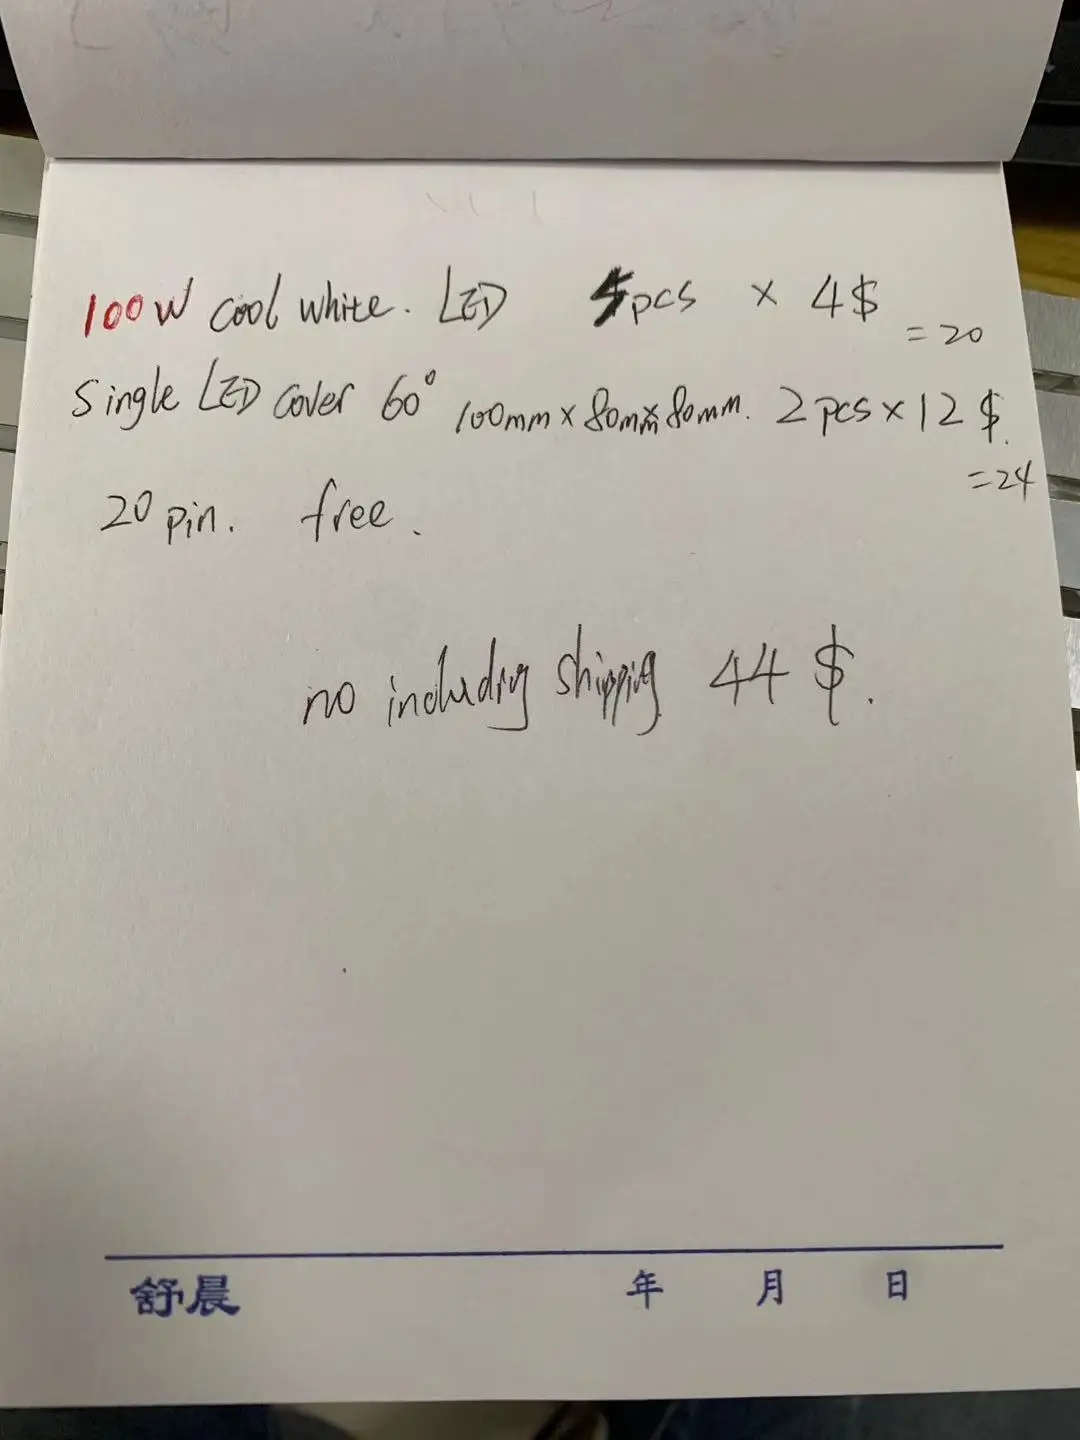 100W cool white. LED 5pcs × 4$
= 20
Single LED cover 60° 100mm × 80mm × 80mm. 2 pcs × 12 $.
= 24
20 pin. free.
no including shipping 44 $.
舒晨 年 月 日